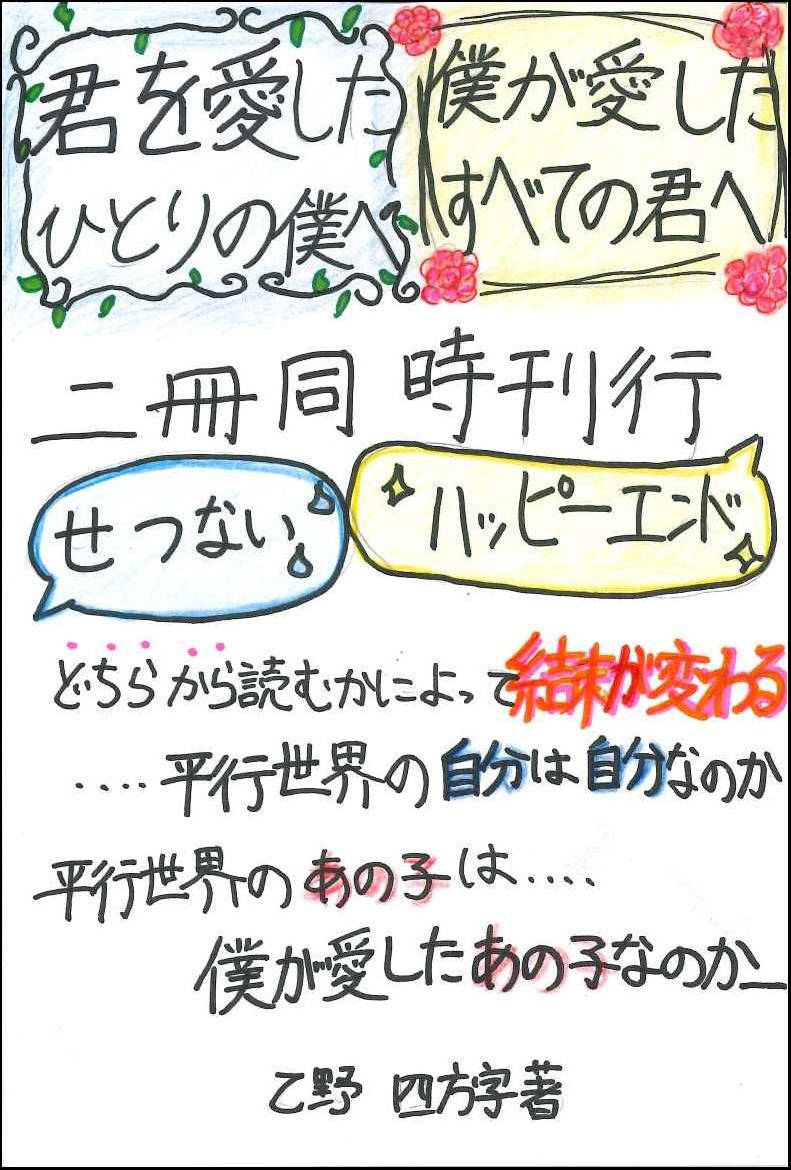 君を愛した
ひとりの僕へ
僕が愛した
すべての君へ
二冊同時刊行
せつない
ハッピーエンド
どちらから読むかによって結末が変わる
....平行世界の自分は自分なのか
平行世界のあの子は....
僕が愛したあの子なのか_
乙野 四方字著